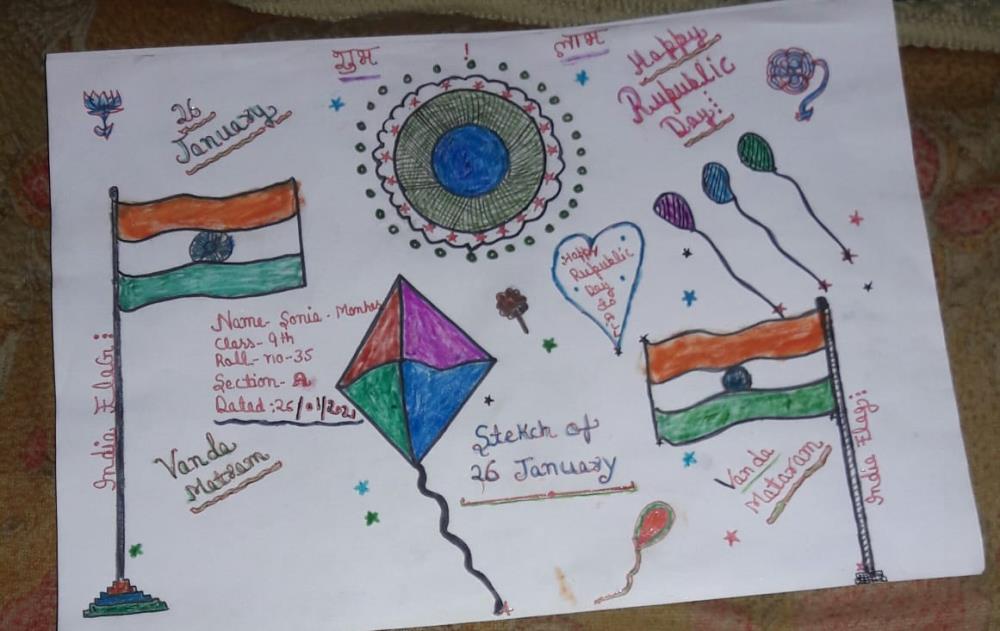 शुभ ! लाभ
Happy
Rupublic
Day:
26
January
Happy
Rupublic
Day
Name- Sonia -
Class- 9th
Roll- no-35
Section- A
Datad :26/01/2021
India Flag:
Vanda
Matram
Stekch of
26 January
Vanda
Mataram
India Flag: